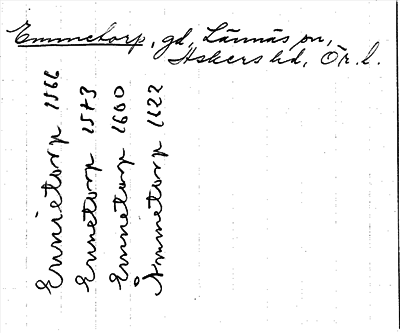 Emmetorp, gd, Lännäs sn,
Askers hd, Ör. l.
Ennietorp 1566
Ennetorp 1573
Emmetorp 1600
Ammetorp 1622